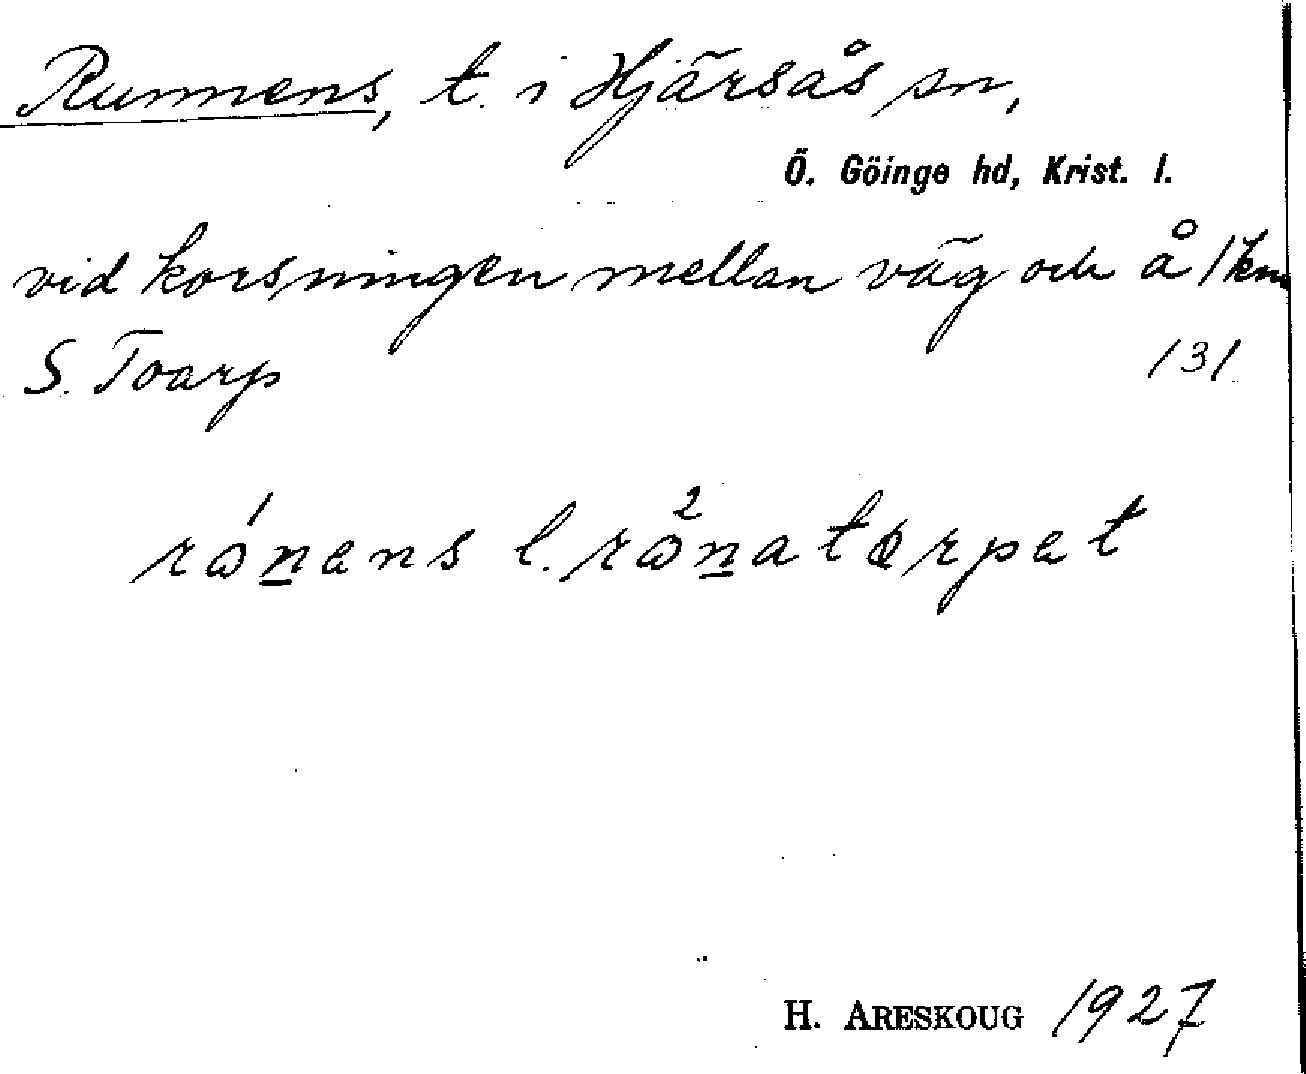 Runnens, t. i Hjärsås sn,
Ö. Göinge hd, Krist. l.
vid korsningen mellan väg och å 1 km
S. Toarp /3/
rónens l. rònatorpet
H. ARESKOUG 1927